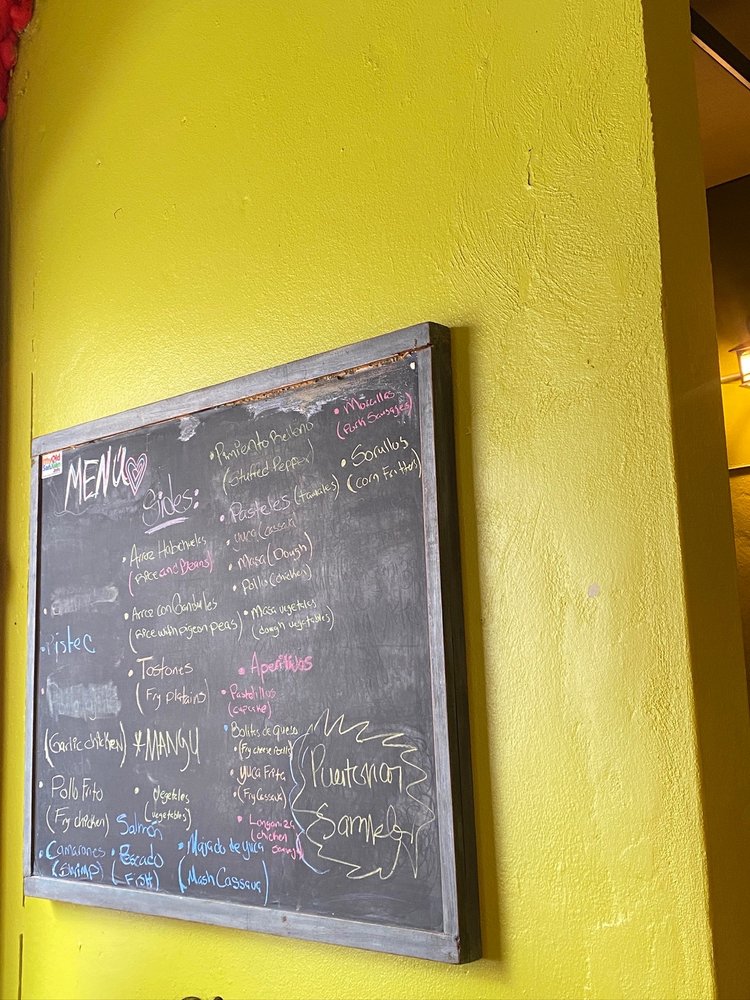 MENÚ
Pistec
(Garlic chicken)
Pollo Frito
(Fry chicken)
Camarones
(Shrimp)
Salmon
Pescado
(Fish)
Sides:
Arroz Habichuelas
(Rice and Beans)
Arroz con Gandules
(Rice with pigeon peas)
Tostones
(Fry platains)
MANGU
Vegetales
(vegetables)
Majado de yuca
(Mash Cassava)
Pimiento Relleno
(Stuffed Pepper)
Pasteles (tamales)
yuca (cassava)
Masa (Dough)
Pollo (chicken)
Masa vegetales
(dough vegetables)
Aperitivos
Pastelillos
Bolitas de queso
yuca Frita
(Fry Cassava)
Longaniza
(chicken
Morcillas
(Pork Sausages)
Sorullos
(corn Fritters)